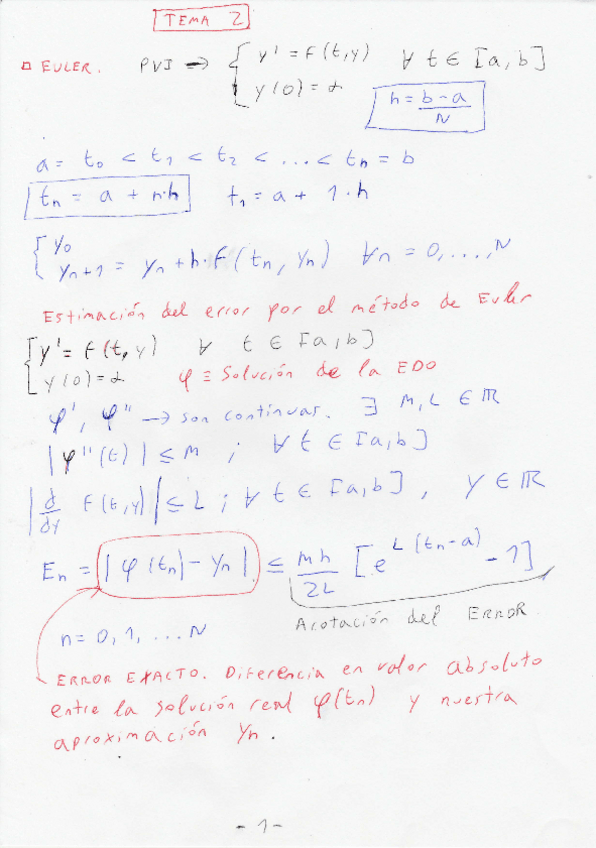 TEMA 2
□ EULER. PVI → { y' = f(t,y) ∀ t ∈ [a,b]
y(0) = α
h = b-a / N
a = t₀ < t₁ < t₂ < ... < tₙ = b
tₙ = a + n·h t₁ = a + 1·h
{ y₀
yₙ₊₁ = yₙ + h·f(tₙ, yₙ) ∀n = 0,...,N
Estimación del error por el método de Euler
{ y' = f(t,y) ∀ t ∈ [a,b]
y(0) = α φ ≡ Solución de la EDO
φ', φ'' → son continuas. ∃ M, L ∈ ℝ
|φ''(t)| ≤ M ; ∀ t ∈ [a,b]
|d/dy f(t,y)| ≤ L ; ∀ t ∈ [a,b] , y ∈ ℝ
Eₙ = |φ(tₙ) - yₙ| ≤ Mh/2L [e^L(tₙ-a) - 1]
Acotación del ERROR.
n = 0, 1, ... N
ERROR EXACTO. Diferencia en valor absoluto
entre la solución real φ(tₙ) y nuestra
aproximación yₙ.
- 1 -